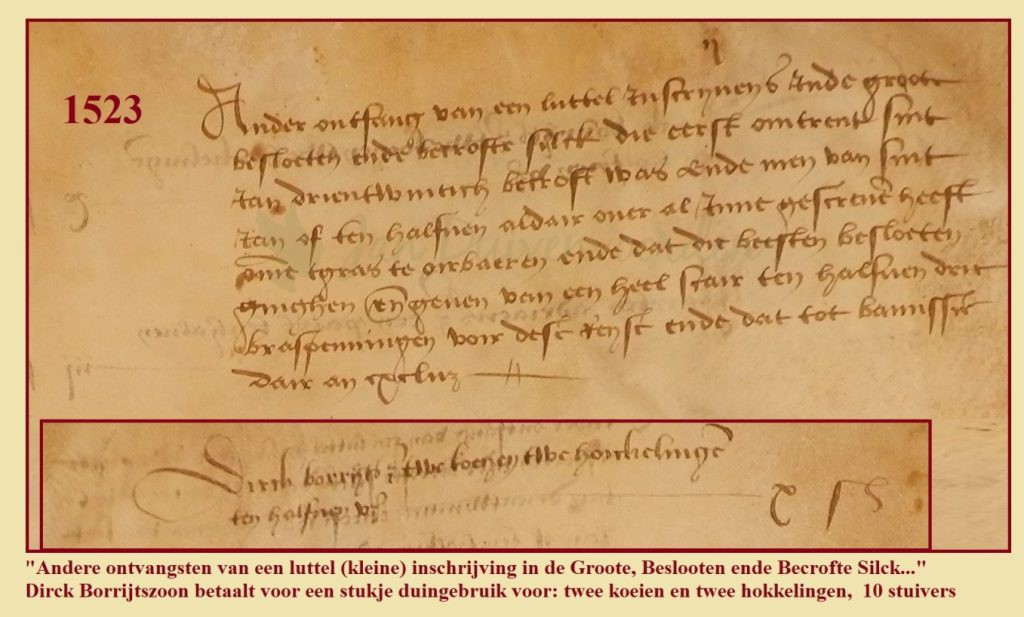 1523
Ander ontfang van een luttel Inscryvens Inde groote
besloeten ende becrofte silck die eerst omtrent sint
Jan drientwintich becroft was ende men van sint
Jan of ten halfuen aldair ouer al Inne gescreuen heeft
ome tgras te oirbaeren ende dat die beesten besloeten
ginghen en geuen van een heel scair ten halfuen drie
braspenningen voir dese reyse ende dat tot bamisse
dair an
Dirck borrijts twe koeyen twe honckelingen
ten halfuen
x
"Andere ontvangsten van een luttel (kleine) inschrijving in de Groote, Beslooten ende Becrofte Silck..."
Dirck Borrijtszoon betaalt voor een stukje duingebruik voor: twee koeien en twee hokkelingen, 10 stuivers